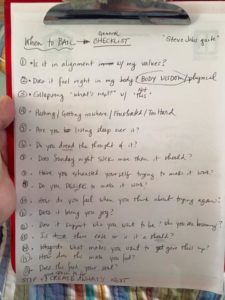 When to BAIL → General CHECKLIST "Steve Jobs quote"
① Is it in alignment w/ my values?
② Does it feel right in my body (BODY WISDOM) / physical
③ Collapsing "what's next" w/ "this"
④ Hating / Getting nowhere / Frustrated / Too Hard
⑤ Are you losing sleep over it?
⑥ Do you dread the thought of it?
⑦ Does Sunday night seem more than it should?
⑧ Have you exhausted yourself trying to make it work?
⑨ Do you to make it work?
⑩ How do you feel when you think about trying again?
Does it bring you joy?
Does it support who you want to be? Who you are becoming?
Is there ease or is it a should?
Integrate what makes you want to give this up?
How does this make you feel?
Does this feel your soul?
STEP 2 CREATE WHAT'S NEXT